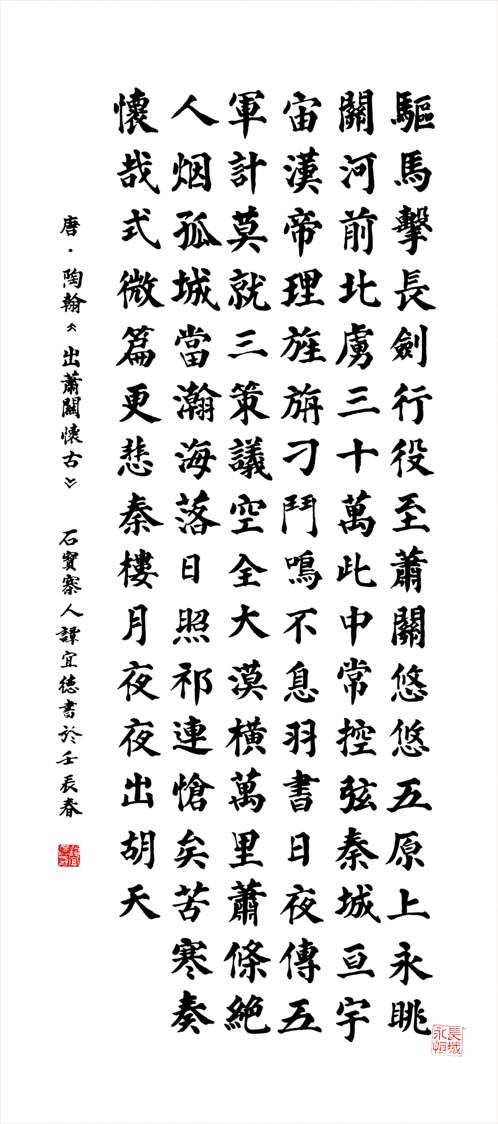 驅馬擊長劍行役至蕭關悠悠五原上永眺
關河前北虜三十萬此中常控弦秦城亘宇
宙漢帝理旌旃刁鬥鳴不息羽書日夜傳五
軍計莫就三策議空全大漠橫萬里蕭條絕
人烟孤城當瀚海落日照祁連愴矣苦寒奏
懷哉式微篇更悲秦樓月夜夜出胡天
唐·陶翰《出蕭關懷古》 石寶寨人譚宜德書於壬辰春
長城永恒